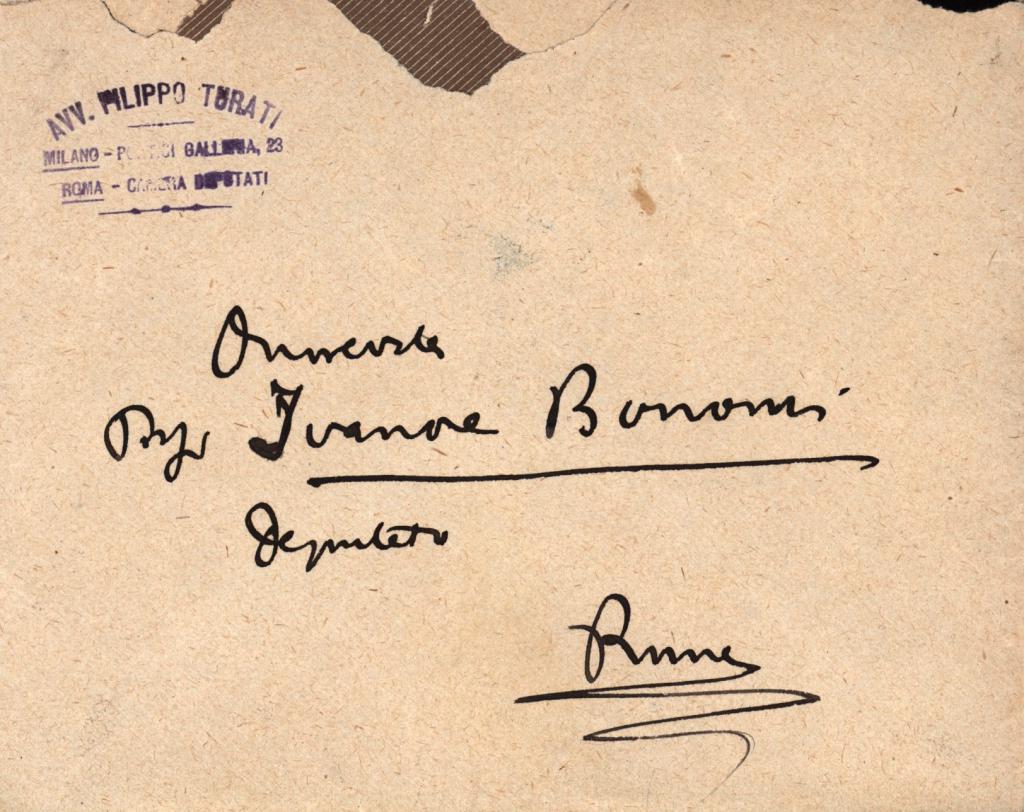 AVV. FILIPPO TURATI
MILANO - PORTICI GALLERIA, 23
ROMA - CAMERA DEPUTATI
Onorevole
Ivanoe Bonomi
Deputato
Roma